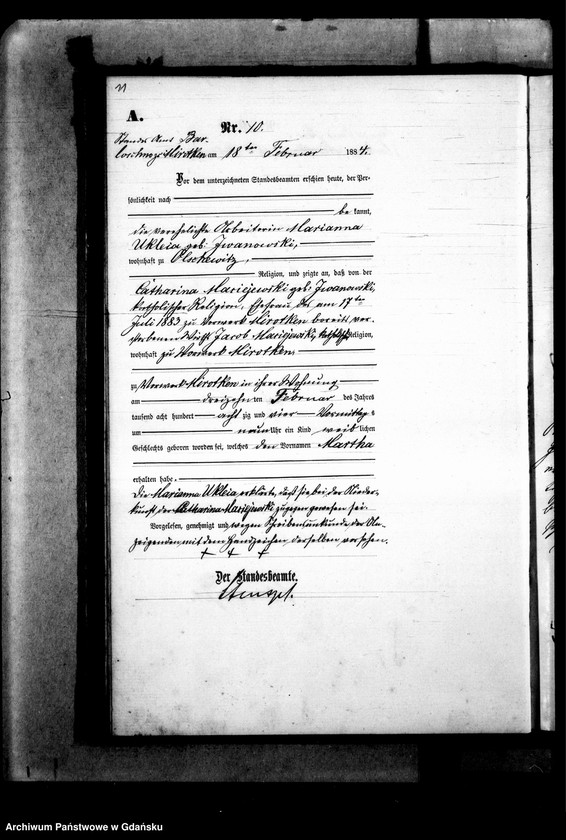 A.
Nr. 10.
Standes Amt Bar-
loschno zu Mirotken am 18ten Februar 1884.
Vor dem unterzeichneten Standesbeamten erschien heute, der Per-
sönlichkeit nach
bekannt,
die verehelichte Arbeiterin Marianna
Ukleia geb: Iwanowski,
wohnhaft zu Olschewitz,
Religion, und zeigte an, daß von der
Catharina Maciejewski geb: Iwanowski,
katholischer Religion, Ehefrau des am 17ten
Juli 1883 zu Vorwerk Mirotken bereits ver-
storbenen Wirth Jacob Maciejewski, katholischer Religion,
wohnhaft zu Vorwerk Mirotken
zu Vorwerk Mirotken in ihrer Wohnung
am dreizehnten Februar des Jahres
tausend acht hundert achtzig und vier Vormittags
um neun Uhr ein Kind weiblichen
Geschlechts geboren worden sei, welches den Vornamen Martha
erhalten habe.
Die Marianna Ukleia erklärte, daß sie bei der Nieder-
kunft der Catharina Maciejewski zugegen gewesen sei.
Vorgelesen, genehmigt und wegen Schreibensunkunde der An-
zeigenden mit dem Handzeichen derselben versehen.
+ + +
Der Standesbeamte.
Archiwum Państwowe w Gdańsku